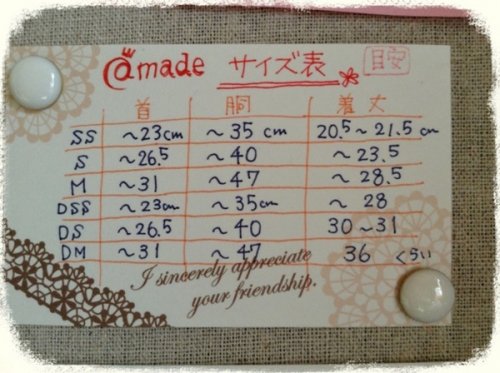 @made サイズ表 目安
首 胴 着丈
SS ~23cm ~35cm 20.5~21.5cm
S ~26.5 ~40 ~23.5
M ~31 ~47 ~28.5
DSS ~23cm ~35cm ~28
DS ~26.5 ~40 30~31
DM ~31 ~47 36 くらい
I sincerely appreciate
your friendship.